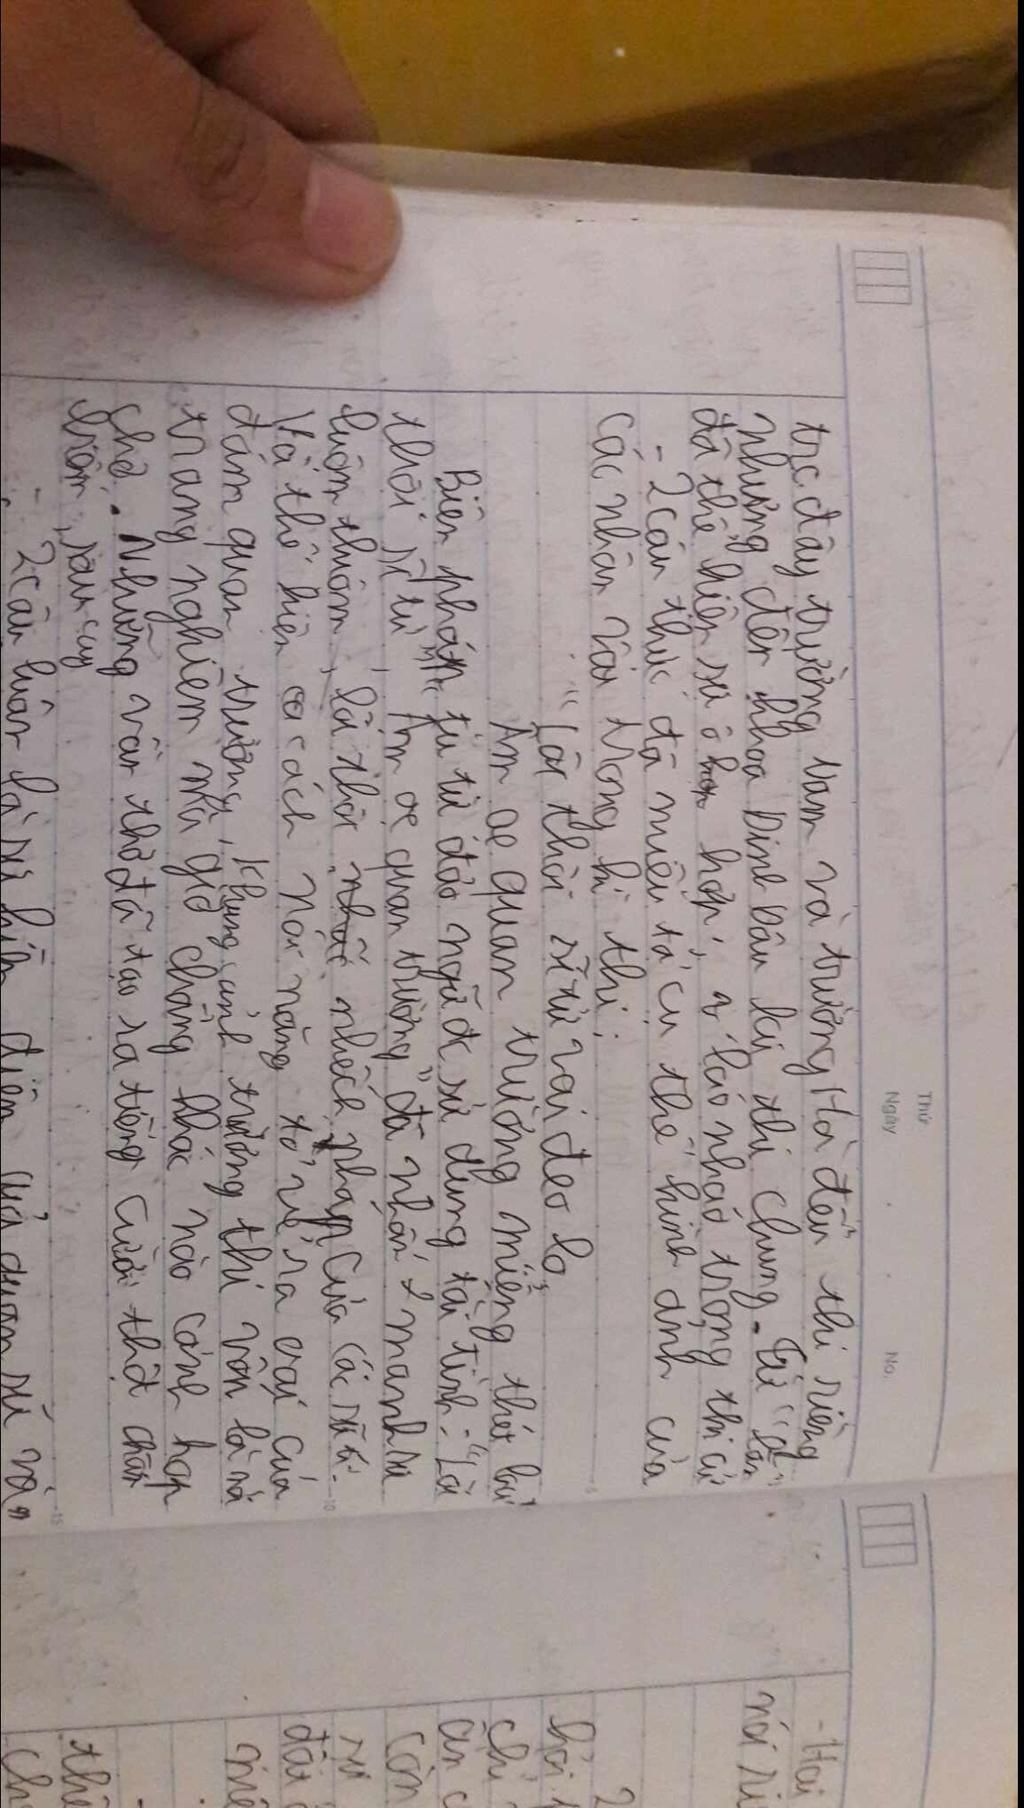 Thứ
Ngày . . No.
trc đây trường Nam và trường Hà đều thi riêng
nhưng đến khoa Đinh Dậu lại thi chung. Từ "lẫn"
đã thể hiện sự ô hợp, láo nháo trong thi cử
- 2 câu thực đã miêu tả cụ thể hình ảnh của
các nhân vật trong kì thi:
"Lôi thôi sĩ tử vai đeo lọ
Ậm oẹ quan trường miệng thét loa"
Biện pháp tu từ đảo ngữ đc sử dụng tài tình: "Lôi
thôi sĩ tử", "Ậm oẹ quan trường" đã nhấn mạnh sự
luộm thuộm, lôi thôi nhếch nhác của các sĩ tử.
Và thể hiện cách nói năng ra oai của
đám quan trường, khung cảnh trường thi vốn là nơi
trang nghiêm mà giờ chẳng khác nào cảnh họp
chợ. Những vần thơ đã tạo ra tiếng cười thật châm
biếm, sâu cay
- 2 câu luận là sự hiện diện của quan sứ và
- Hai